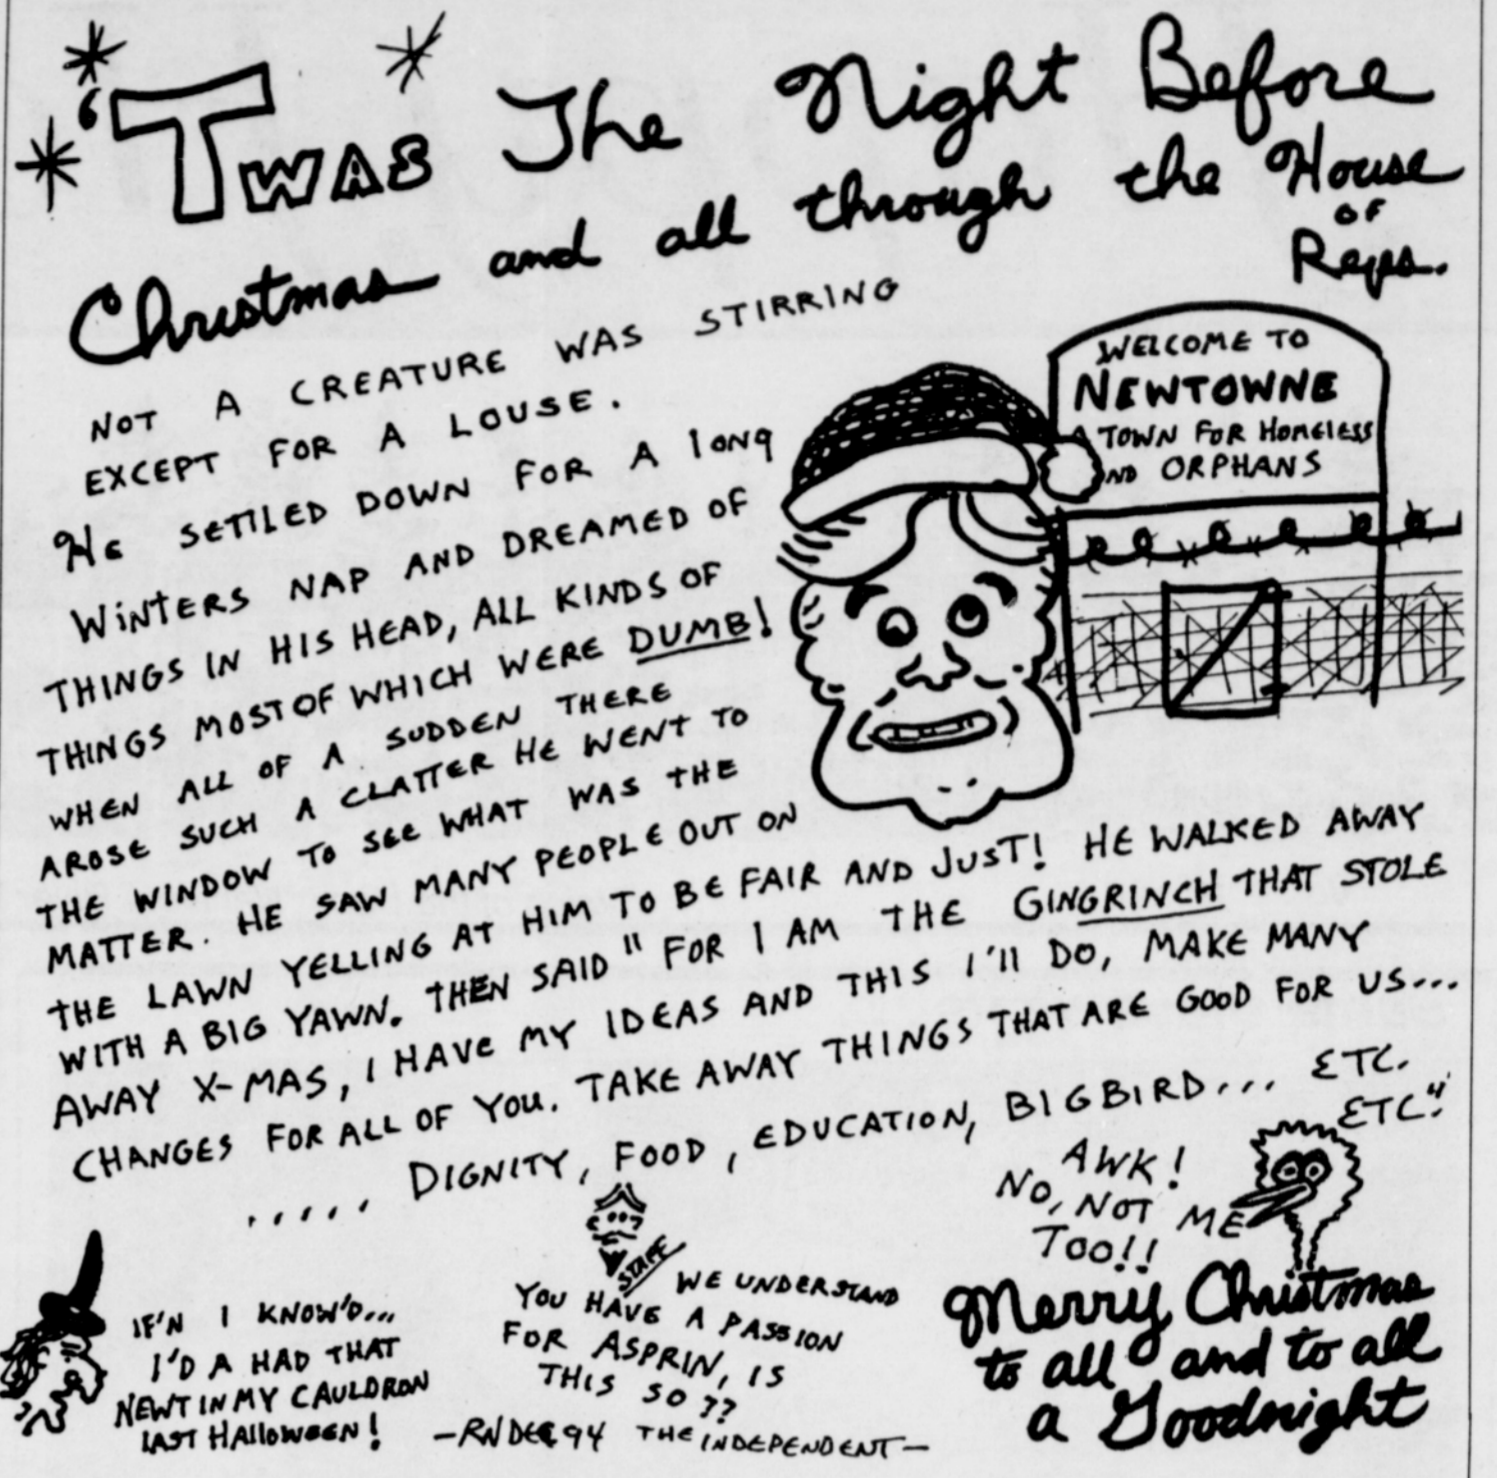 'Twas The Night Before
Christmas and all through the House
of
Reps.
NOT A CREATURE WAS STIRRING
EXCEPT FOR A LOUSE.
He SETTLED DOWN FOR A long
WiNTERS NAP AND DREAMED OF
THINGS IN HIS HEAD, ALL KINDS OF
THINGS MOST OF WHICH WERE DUMB!
WHEN ALL OF A SUDDEN THERE
AROSE SUCH A CLATTER HE WENT TO
THE WINDOW TO SEE WHAT WAS THE
MATTER. HE SAW MANY PEOPLE OUT ON
THE LAWN YELLING AT HIM TO BE FAIR AND JUST! HE WALKED AWAY
WITH A BIG YAWN. THEN SAID "FOR I AM THE GINGRINCH THAT STOLE
AWAY X-MAS, I HAVE MY IDEAS AND THIS I'll DO, MAKE MANY
CHANGES FOR ALL OF YOU. TAKE AWAY THINGS THAT ARE GOOD FOR US...
..... DIGNITY, FOOD, EDUCATION, BIGBIRD... ETC.
ETC."
WELCOME TO
NEWTOWNE
A TOWN FOR HOMELESS
ND ORPHANS
AWK!
NO, NOT ME
TOO!!
IF'N I KNOW'D...
I'D A HAD THAT
NEWT IN MY CAULDRON
LAST HAllOWEEN!
STAFF
WE UNDERSTAND
YOU HAVE A PASSION
FOR ASPRIN, IS
THIS SO??
-RN DEC 94 THE INDEPENDENT-
Merry Christmas
to all and to all
a Goodnight